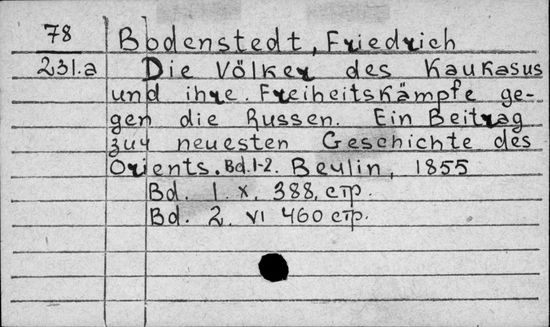 78 Bodenstedt, Friedrich
231.a Die Völker des Kaukasus
und ihre Freiheitskämpfe ge-
gen die Russen. Ein Beitrag
zur neuesten Geschichte des
Orients. Bd.1-2. Berlin, 1855
Bd. 1. X, 388, стр.
Bd. 2. VI 460 стр.